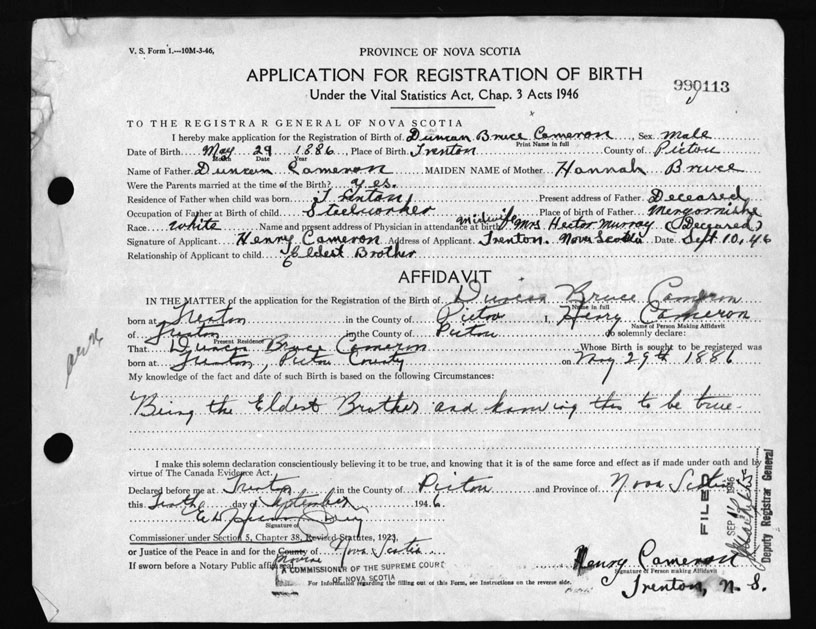 V. S. Form 1.—10M-3-46,
PROVINCE OF NOVA SCOTIA
APPLICATION FOR REGISTRATION OF BIRTH
990113
Under the Vital Statistics Act, Chap. 3 Acts 1946
TO THE REGISTRAR GENERAL OF NOVA SCOTIA
I hereby make application for the Registration of Birth of Duncan Bruce Cameron, Sex male
Print Name in full
Date of Birth May 29 1886, Place of Birth Trenton County of Pictou
Month Date Year
Name of Father Duncan Cameron MAIDEN NAME of Mother Hannah Bruce
Were the Parents married at the time of the Birth? Yes.
Residence of Father when child was born Trenton Present address of Father Deceased
Occupation of Father at Birth of child Steelworker Place of birth of Father
Race white Name and present address of Physician in attendance at birth midwife Mrs Hector Murray (Deceased)
Signature of Applicant Henry Cameron Address of Applicant Trenton. Nova Scotia Date Sept. 10, 46
Relationship of Applicant to child Eldest Brother
AFFIDAVIT
IN THE MATTER of the application for the Registration of the Birth of Duncan Bruce Cameron
Name in full
born at Trenton in the County of Pictou I, Henry Cameron
Name of Person Making Affidavit
of Trenton in the County of Pictou do solemnly declare:
Present Residence
That Duncan Bruce Cameron Whose Birth is sought to be registered was
born at Trenton, Pictou County on May 29th 1886
My knowledge of the fact and date of such Birth is based on the following Circumstances:
Being the Eldest Brother and knowing this to be true.
I make this solemn declaration conscientiously believing it to be true, and knowing that it is of the same force and effect as if made under oath and by
virtue of The Canada Evidence Act.
Declared before me at Trenton in the County of Pictou and Province of Nova Scotia
this Tenth day of September 1946
Signature of
Commissioner under Section 5, Chapter 38, Revised Statutes, 1923,
or Justice of the Peace in and for the County of Nova Scotia
Province
If sworn before a Notary Public affix seal
A COMMISSIONER OF THE SUPREME COURT
OF NOVA SCOTIA
Henry Cameron
Signature of Person making Affidavit
Trenton, N. S.
For Information regarding the filling out of this Form, see Instructions on the reverse side.
FILED
SEP 1946
Deputy Registrar General